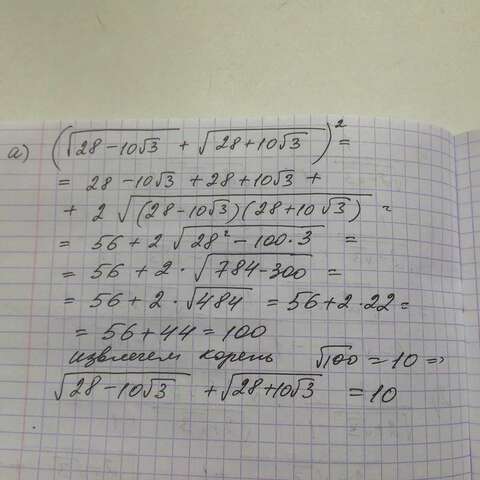 а) (√(28-10√3) + √(28+10√3))² =
= 28-10√3 + 28+10√3 +
+ 2 √((28-10√3)(28+10√3)) =
= 56 + 2 √(28² - 100·3) =
= 56 + 2 · √(784-300) =
= 56 + 2 · √484 = 56 + 2·22 =
= 56 + 44 = 100
извлечем корень √100 = 10 =>
√(28-10√3) + √(28+10√3) = 10